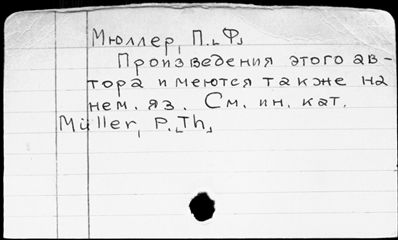 Мюллер, П.[Ф]
Произведения этого ав-
тора имеются также на
нем. яз. См. ин. кат.
Müller, P.[Th]